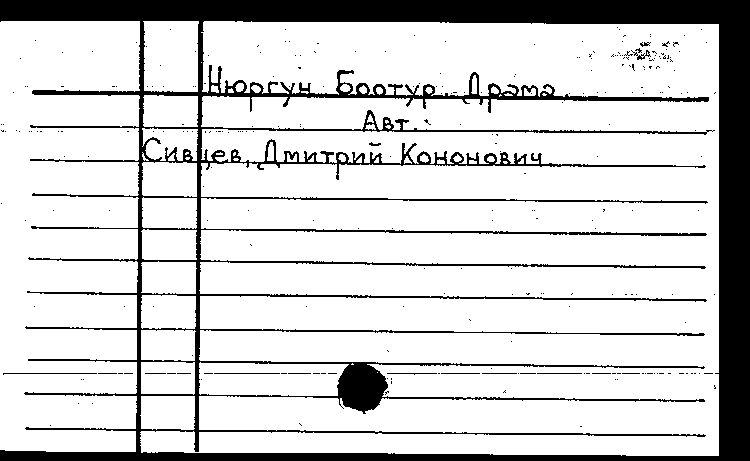 Нюргун Боотур. Драма.
Авт.:
Сивцев, Дмитрий Кононович.